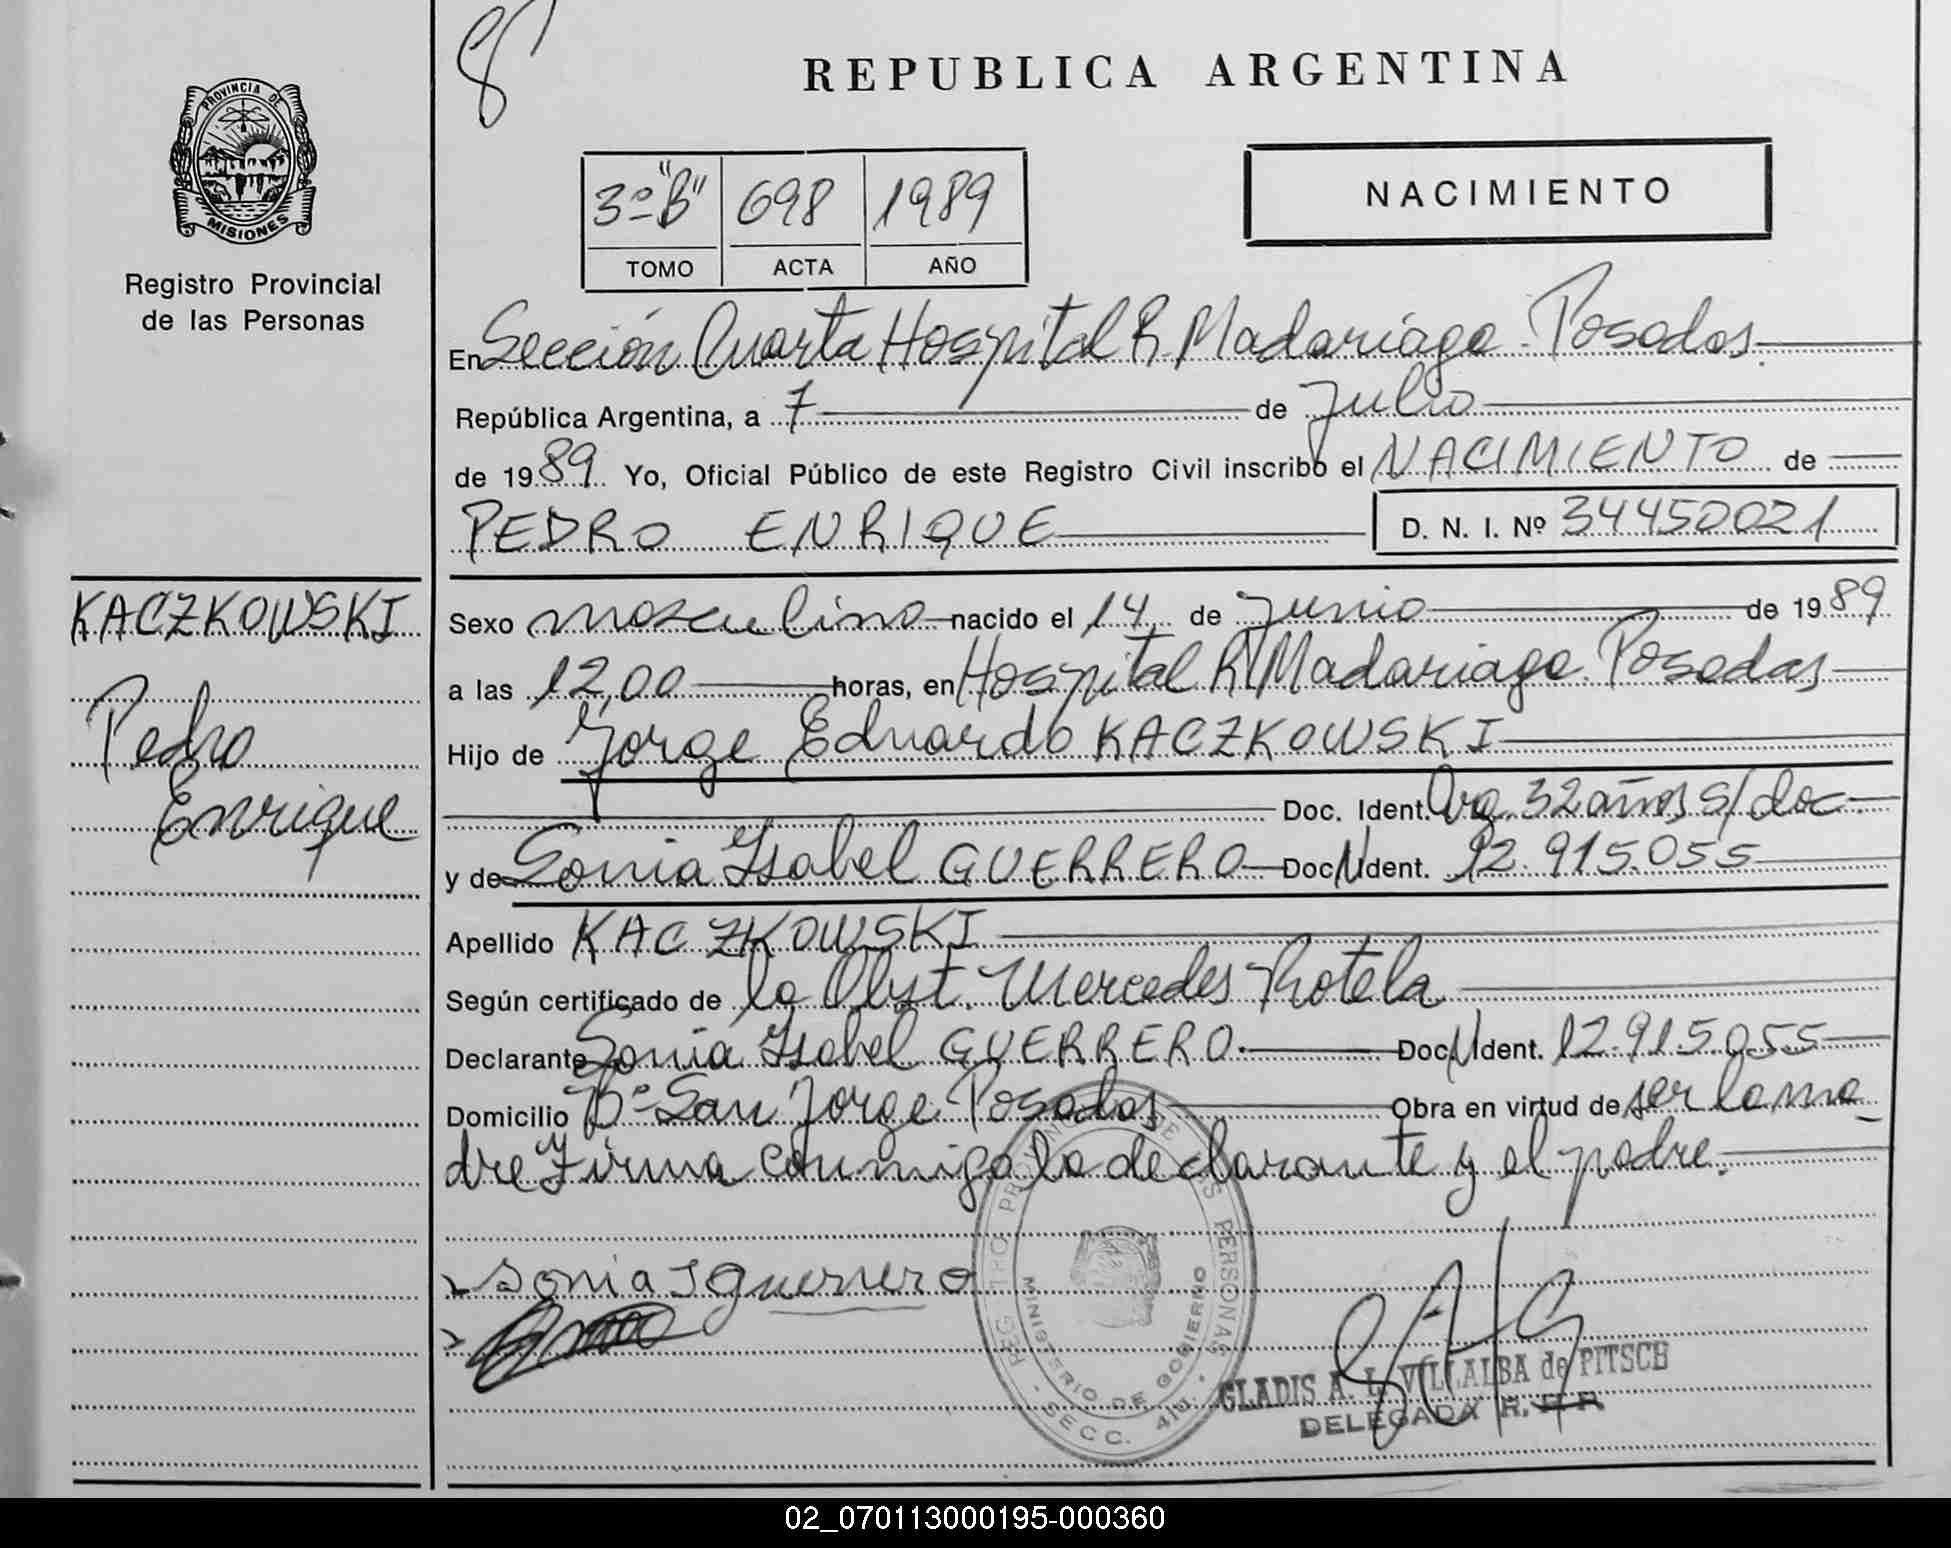 REPUBLICA ARGENTINA
PROVINCIA DE
MISIONES
Registro Provincial
de las Personas
3º "B" 698 1989
TOMO ACTA AÑO
NACIMIENTO
En Sección Cuarta Hospital R. Madariaga - Posadas.
República Argentina, a 7 de Julio
de 1989. Yo, Oficial Público de este Registro Civil inscribo el NACIMIENTO de
PEDRO ENRIQUE D. N. I. Nº 34450021
KACZKOWSKI
Pedro
Enrique
Sexo masculino nacido el 14 de Junio de 1989
a las 12,00 horas, en Hospital R. Madariaga. Posadas
Hijo de Jorge Eduardo KACZKOWSKI
Doc. Ident. Arg. 32 años s/doc.
y de Sonia Ysabel GUERRERO Doc. N Ident. 12.915.055
Apellido KACZKOWSKI
Según certificado de la Obst. Mercedes Rotela
Declarante Sonia Ysabel GUERRERO. Doc. N Ident. 12.915.055
Domicilio Bº San Jorge Posadas Obra en virtud de ser la ma-
dre y Firma conmigo la declarante y el padre.
Sonia I Guerrero
REGISTRO PROVINCIAL DE LAS PERSONAS
MINISTERIO DE GOBIERNO
SECC. 4ta.
GLADIS A. L. VILLALBA de PITSCH
DELEGADA R.
02_070113000195-000360